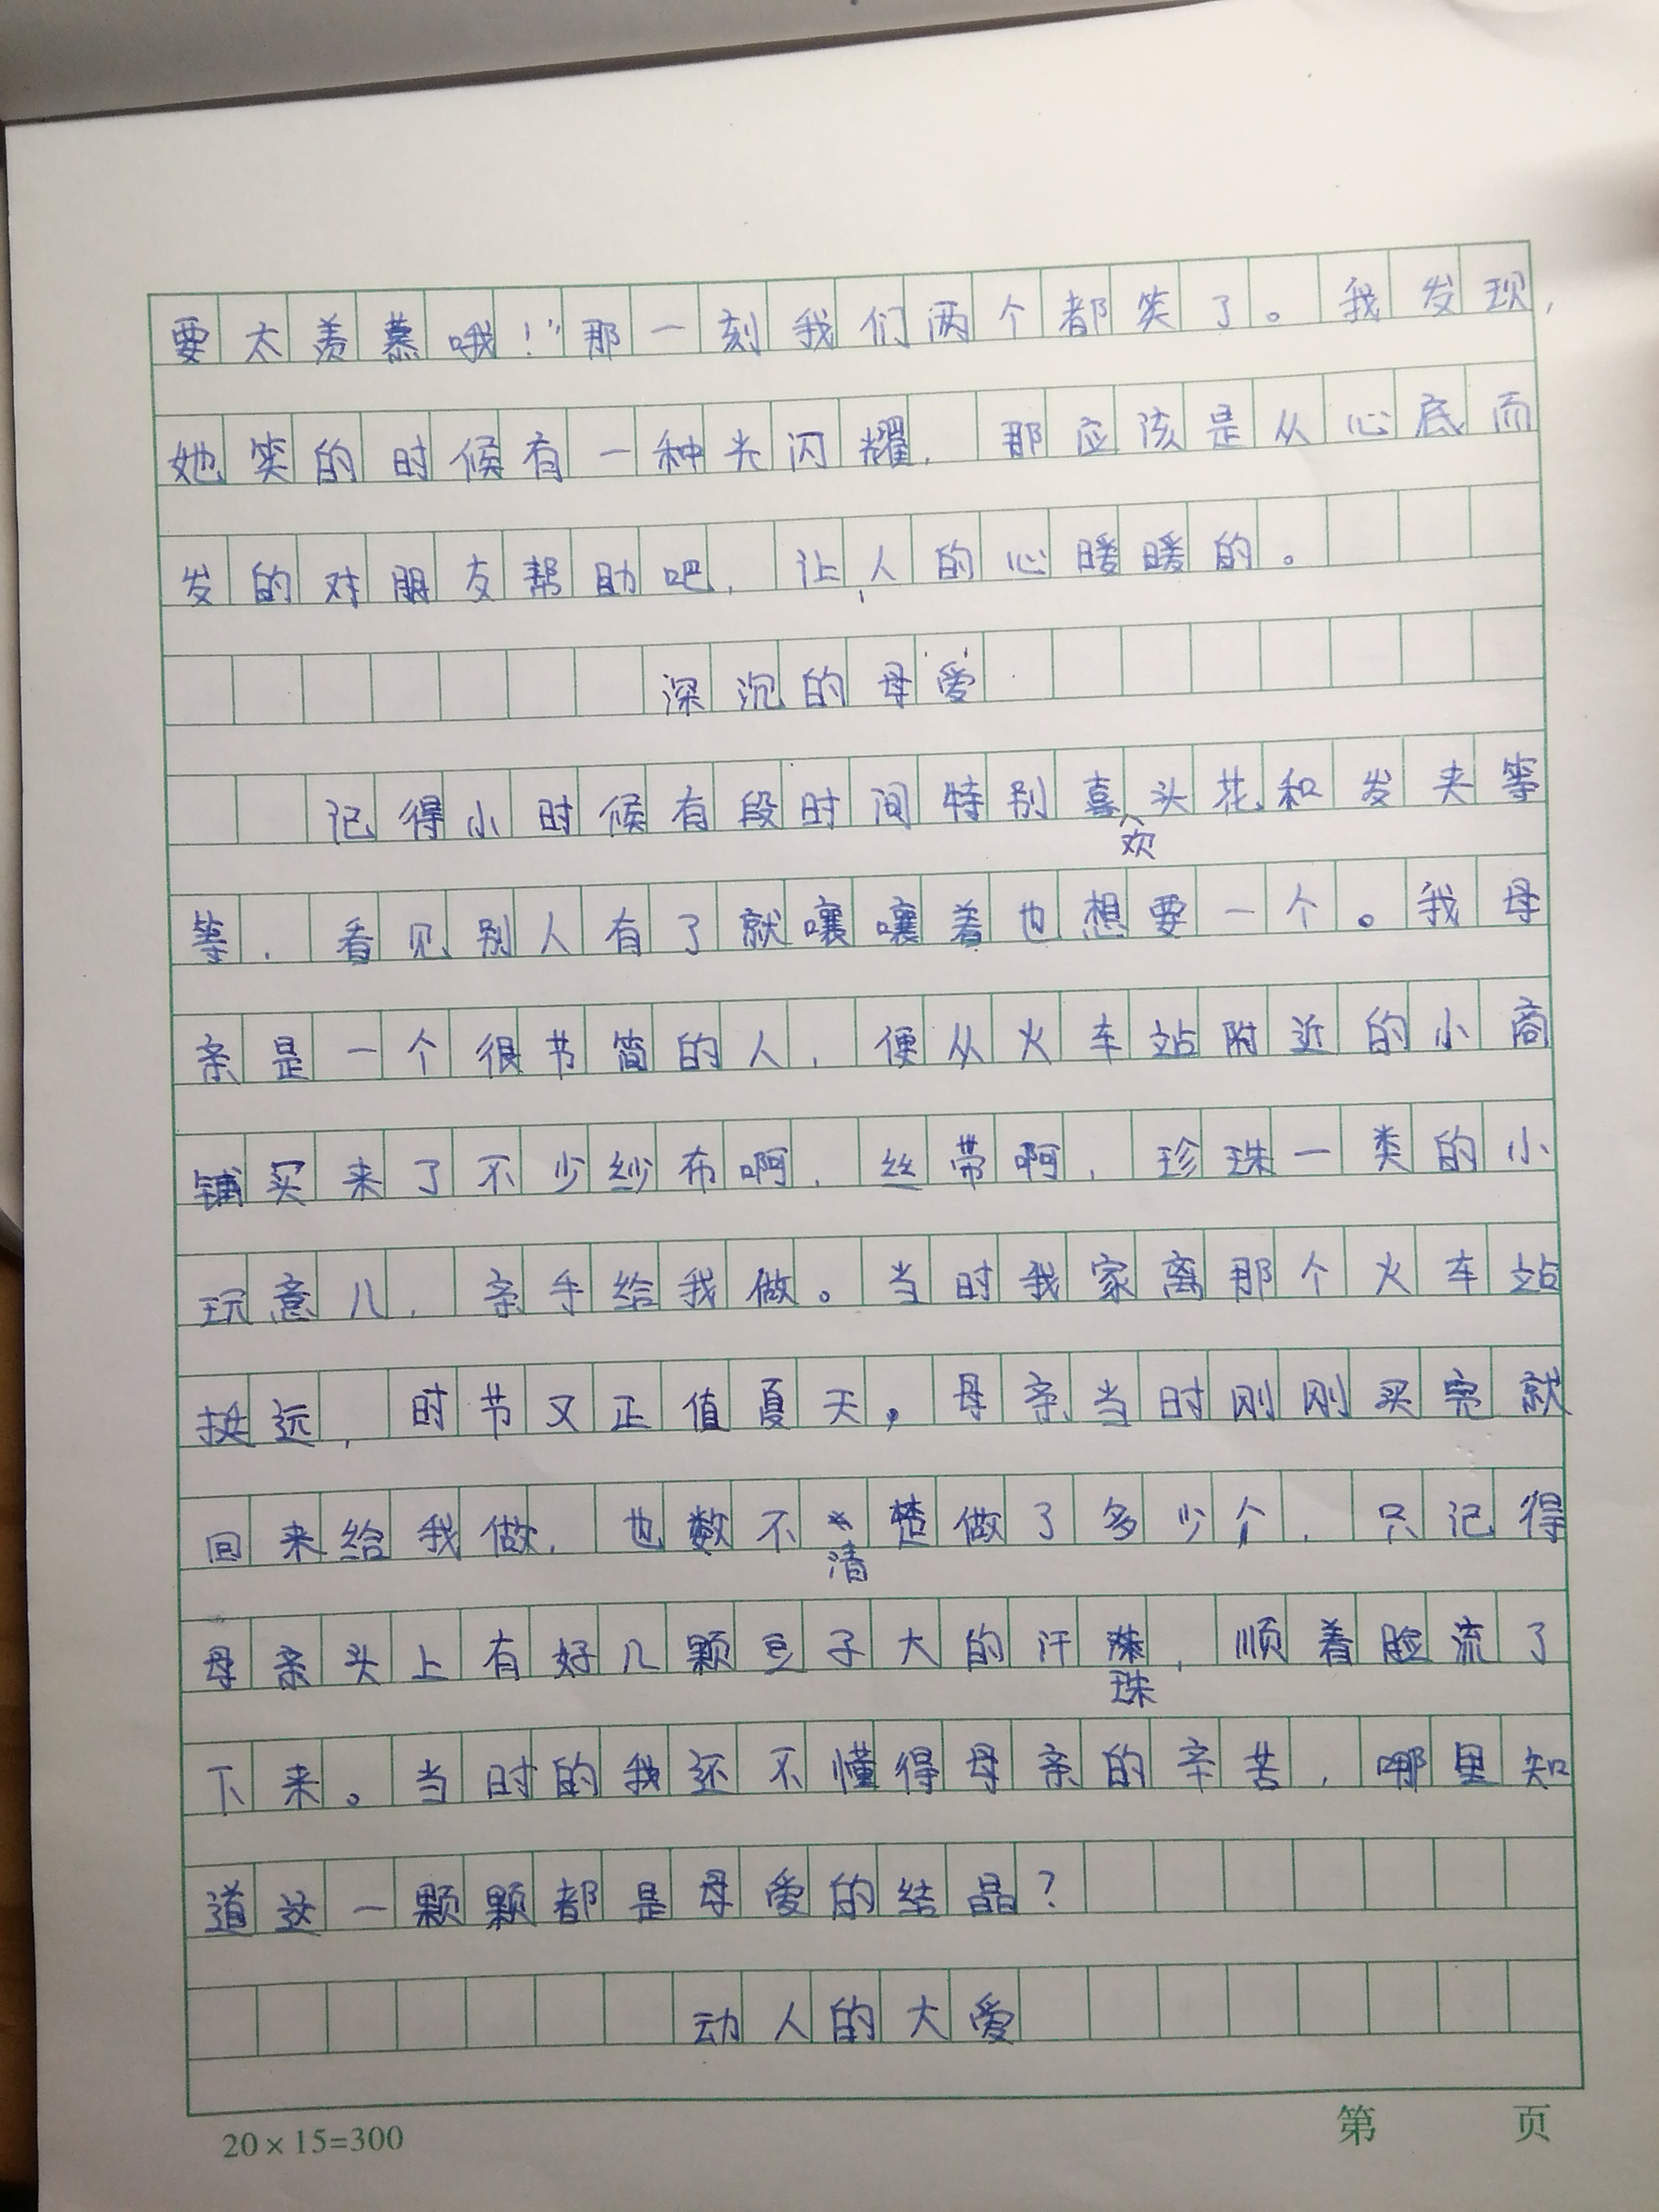 要太羡慕哦！”那一刻我们两个都笑了。我发现，
她笑的时候有一种光闪耀，那应该是从心底而
发的对朋友帮助吧，让人的心暖暖的。
深沉的母爱
记得小时候有段时间特别喜欢头花和发夹等
等，看见别人有了就嚷嚷着也想要一个。我母
亲是一个很节简的人，便从火车站附近的小商
铺买来了不少纱布啊，丝带啊，珍珠一类的小
玩意儿，亲手给我做。当时我家离那个火车站
挺远，时节又正值夏天，母亲当时刚刚买完就
回来给我做，也数不清楚做了多少个，只记得
母亲头上有好几颗豆子大的汗珠，顺着脸流了
下来。当时的我还不懂得母亲的辛苦，哪里知
道这一颗颗都是母爱的结晶？
动人的大爱
20×15=300 第 页